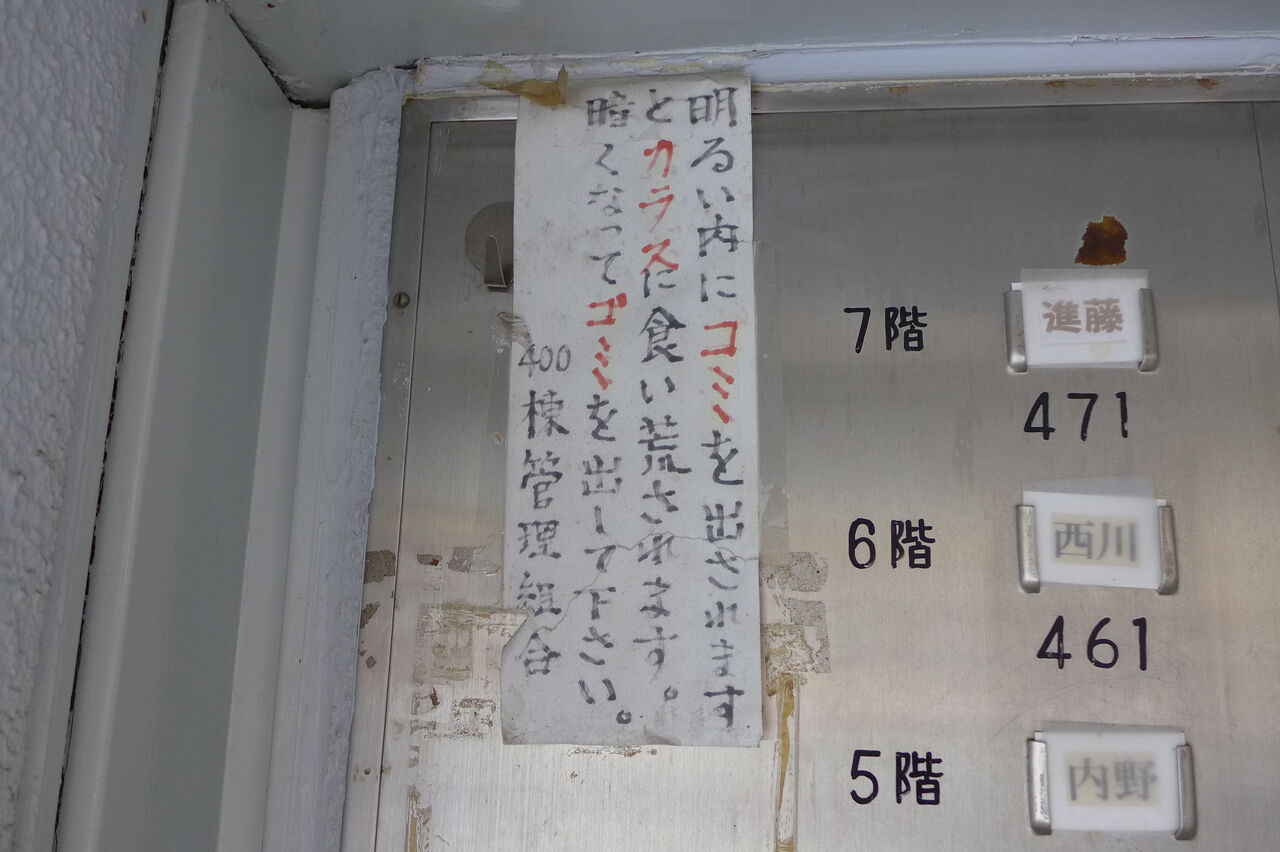 明るい内にゴミを出されます
とカラスに食い荒されます。
暗くなってゴミを出して下さい。
400棟管理組合
7階
進藤
471
6階
西川
461
5階
内野